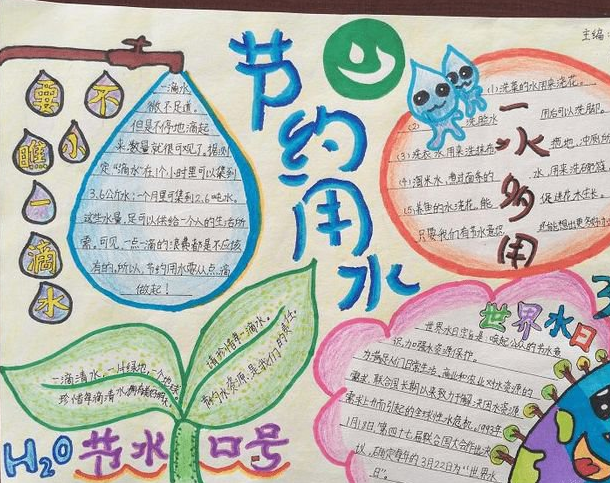 主编:
不要小瞧一滴水
节约用水
一滴水,
微不足道。
但是不停地滴起
来,数量就很可观了。据测
定“滴水”在1个小时里可以集到
3.6公斤水;一个月里可集到2.6吨水,
这些水量,足可以供给一个人的生活所
需。可见,一点一滴的浪费都是不应该
有的。所以,节约用水要从点滴
做起!
一水多用
(1)洗菜的水用来浇花。
(2) 洗脸水 用后可以洗脚。
(3)洗衣水用来洗拖布 拖地,冲厕所
(4)淘米水,煮过面条的 水,用来洗碗筷
(5)养鱼的水浇花,能 促进花木生长。
只要我们有节水意识
一滴清水,一片绿地,一个地球。
珍惜每滴清水
请珍惜每一滴水。
节约水资源,是我们的责任。
H2O 节水口号
世界水日
世界水日宗旨是:唤起公众的节水意
识,加强水资源保护。
为满足人们日常生活、商业和农业对水资源的
需求,联合国长期以来致力于解决因水资源
需求上升而引起的全球性水危机。1993年
1月18日,第四十七届联合国大会作出决
议,确定每年的3月22日为“世界水
日”。